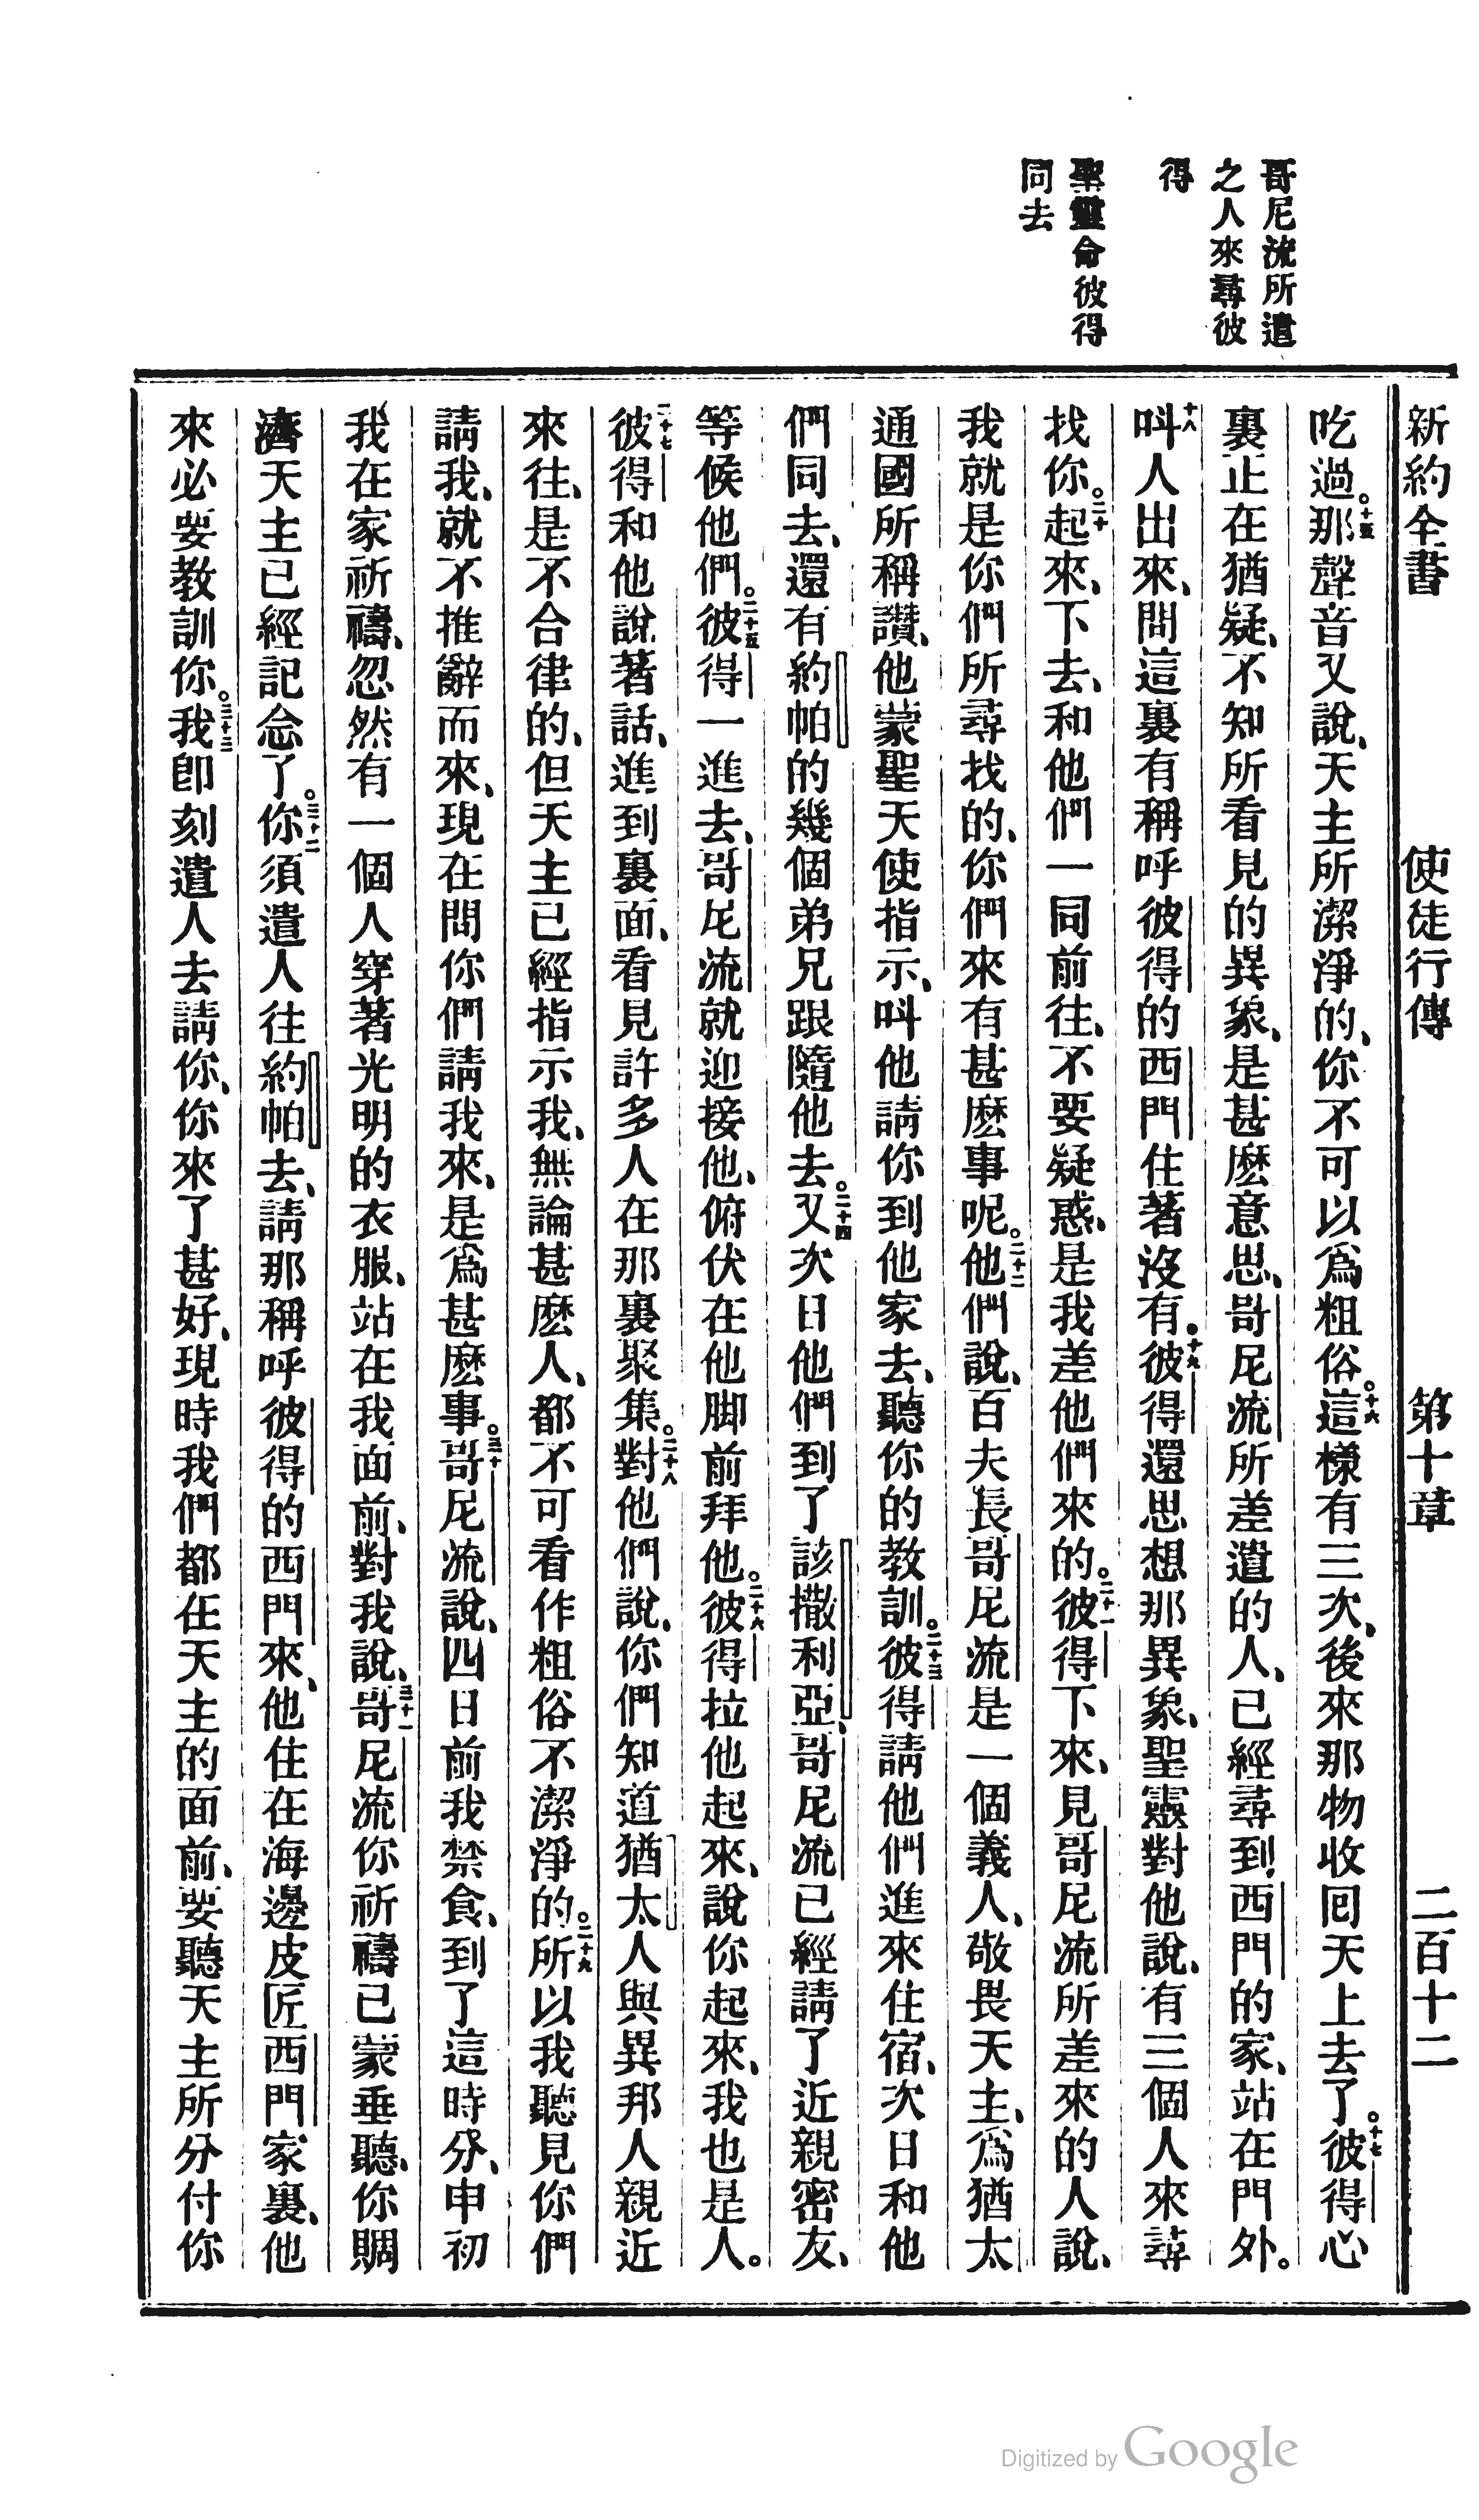 哥尼流所遣
之人來尋彼
得
聖靈命彼得
同去
新約全書 使徒行傳 第十章 二百十二
吃過。十五那聲音又說、天主所潔淨的、你不可以爲粗俗。十六這樣有三次、後來那物收回天上去了。十七彼得心
裏正在猶疑、不知所看見的異象、是甚麽意思、哥尼流所差遣的人、已經尋到西門的家、站在門外。
十八呌人出來、問這裏有稱呼彼得的西門住著沒有。十九彼得還思想那異象、聖靈對他說、有三個人來尋
找你。二十起來、下去、和他們一同前往、不要疑惑、是我差他們來的。二十一彼得下來、見哥尼流所差來的人說、
我就是你們所尋找的、你們來有甚麽事呢。二十二他們說、百夫長哥尼流是一個義人、敬畏天主、爲猶太
通國所稱讚、他蒙聖天使指示、呌他請你到他家去、聽你的教訓。二十三彼得請他們進來住宿、次日和他
們同去、還有約帕的幾個弟兄跟隨他去。二十四又次日他們到了該撒利亞、哥尼流已經請了近親密友、
等候他們。二十五彼得一進去、哥尼流就迎接他、俯伏在他脚前拜他。二十六彼得拉他起來、說你起來、我也是人。
二十七彼得和他說著話、進到裏面、看見許多人在那裏聚集。二十八對他們說、你們知道猶太人與異邦人親近
來往、是不合律的、但天主已經指示我、無論甚麽人、都不可看作粗俗不潔淨的。二十九所以我聽見你們
請我、就不推辭而來、現在問你們請我來、是爲甚麽事。三十哥尼流說、四日前我禁食、到了這時分、申初
我在家祈禱、忽然有一個人穿著光明的衣服、站在我面前、對我說、三十一哥尼流你祈禱已蒙垂聽、你賙
濟天主已經記念了。三十二你須遣人往約帕去、請那稱呼彼得的西門來、他住在海邊皮匠西門家裏、他
來必要教訓你。三十三我卽刻遣人去請你、你來了甚好、現時我們都在天主的面前、要聽天主所分付你
Digitized by Google